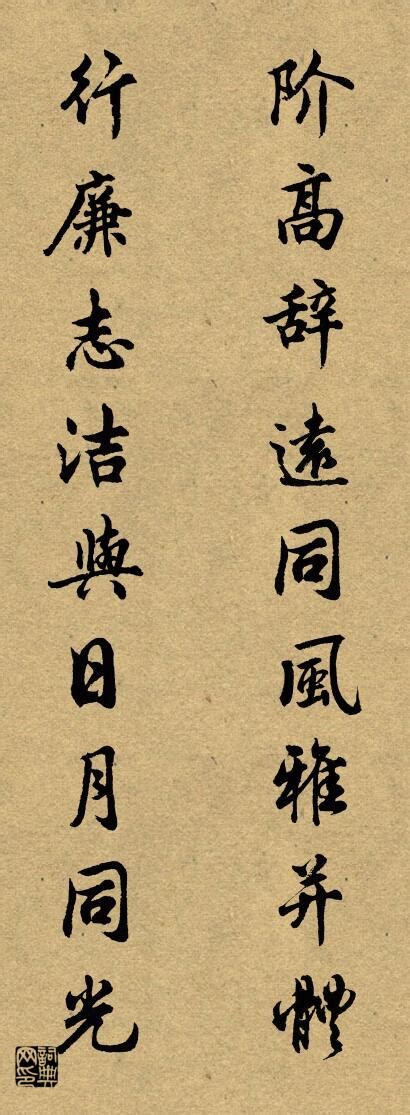 阶高辞遠同風雅并體
行廉志洁與日月同光
詞典網印